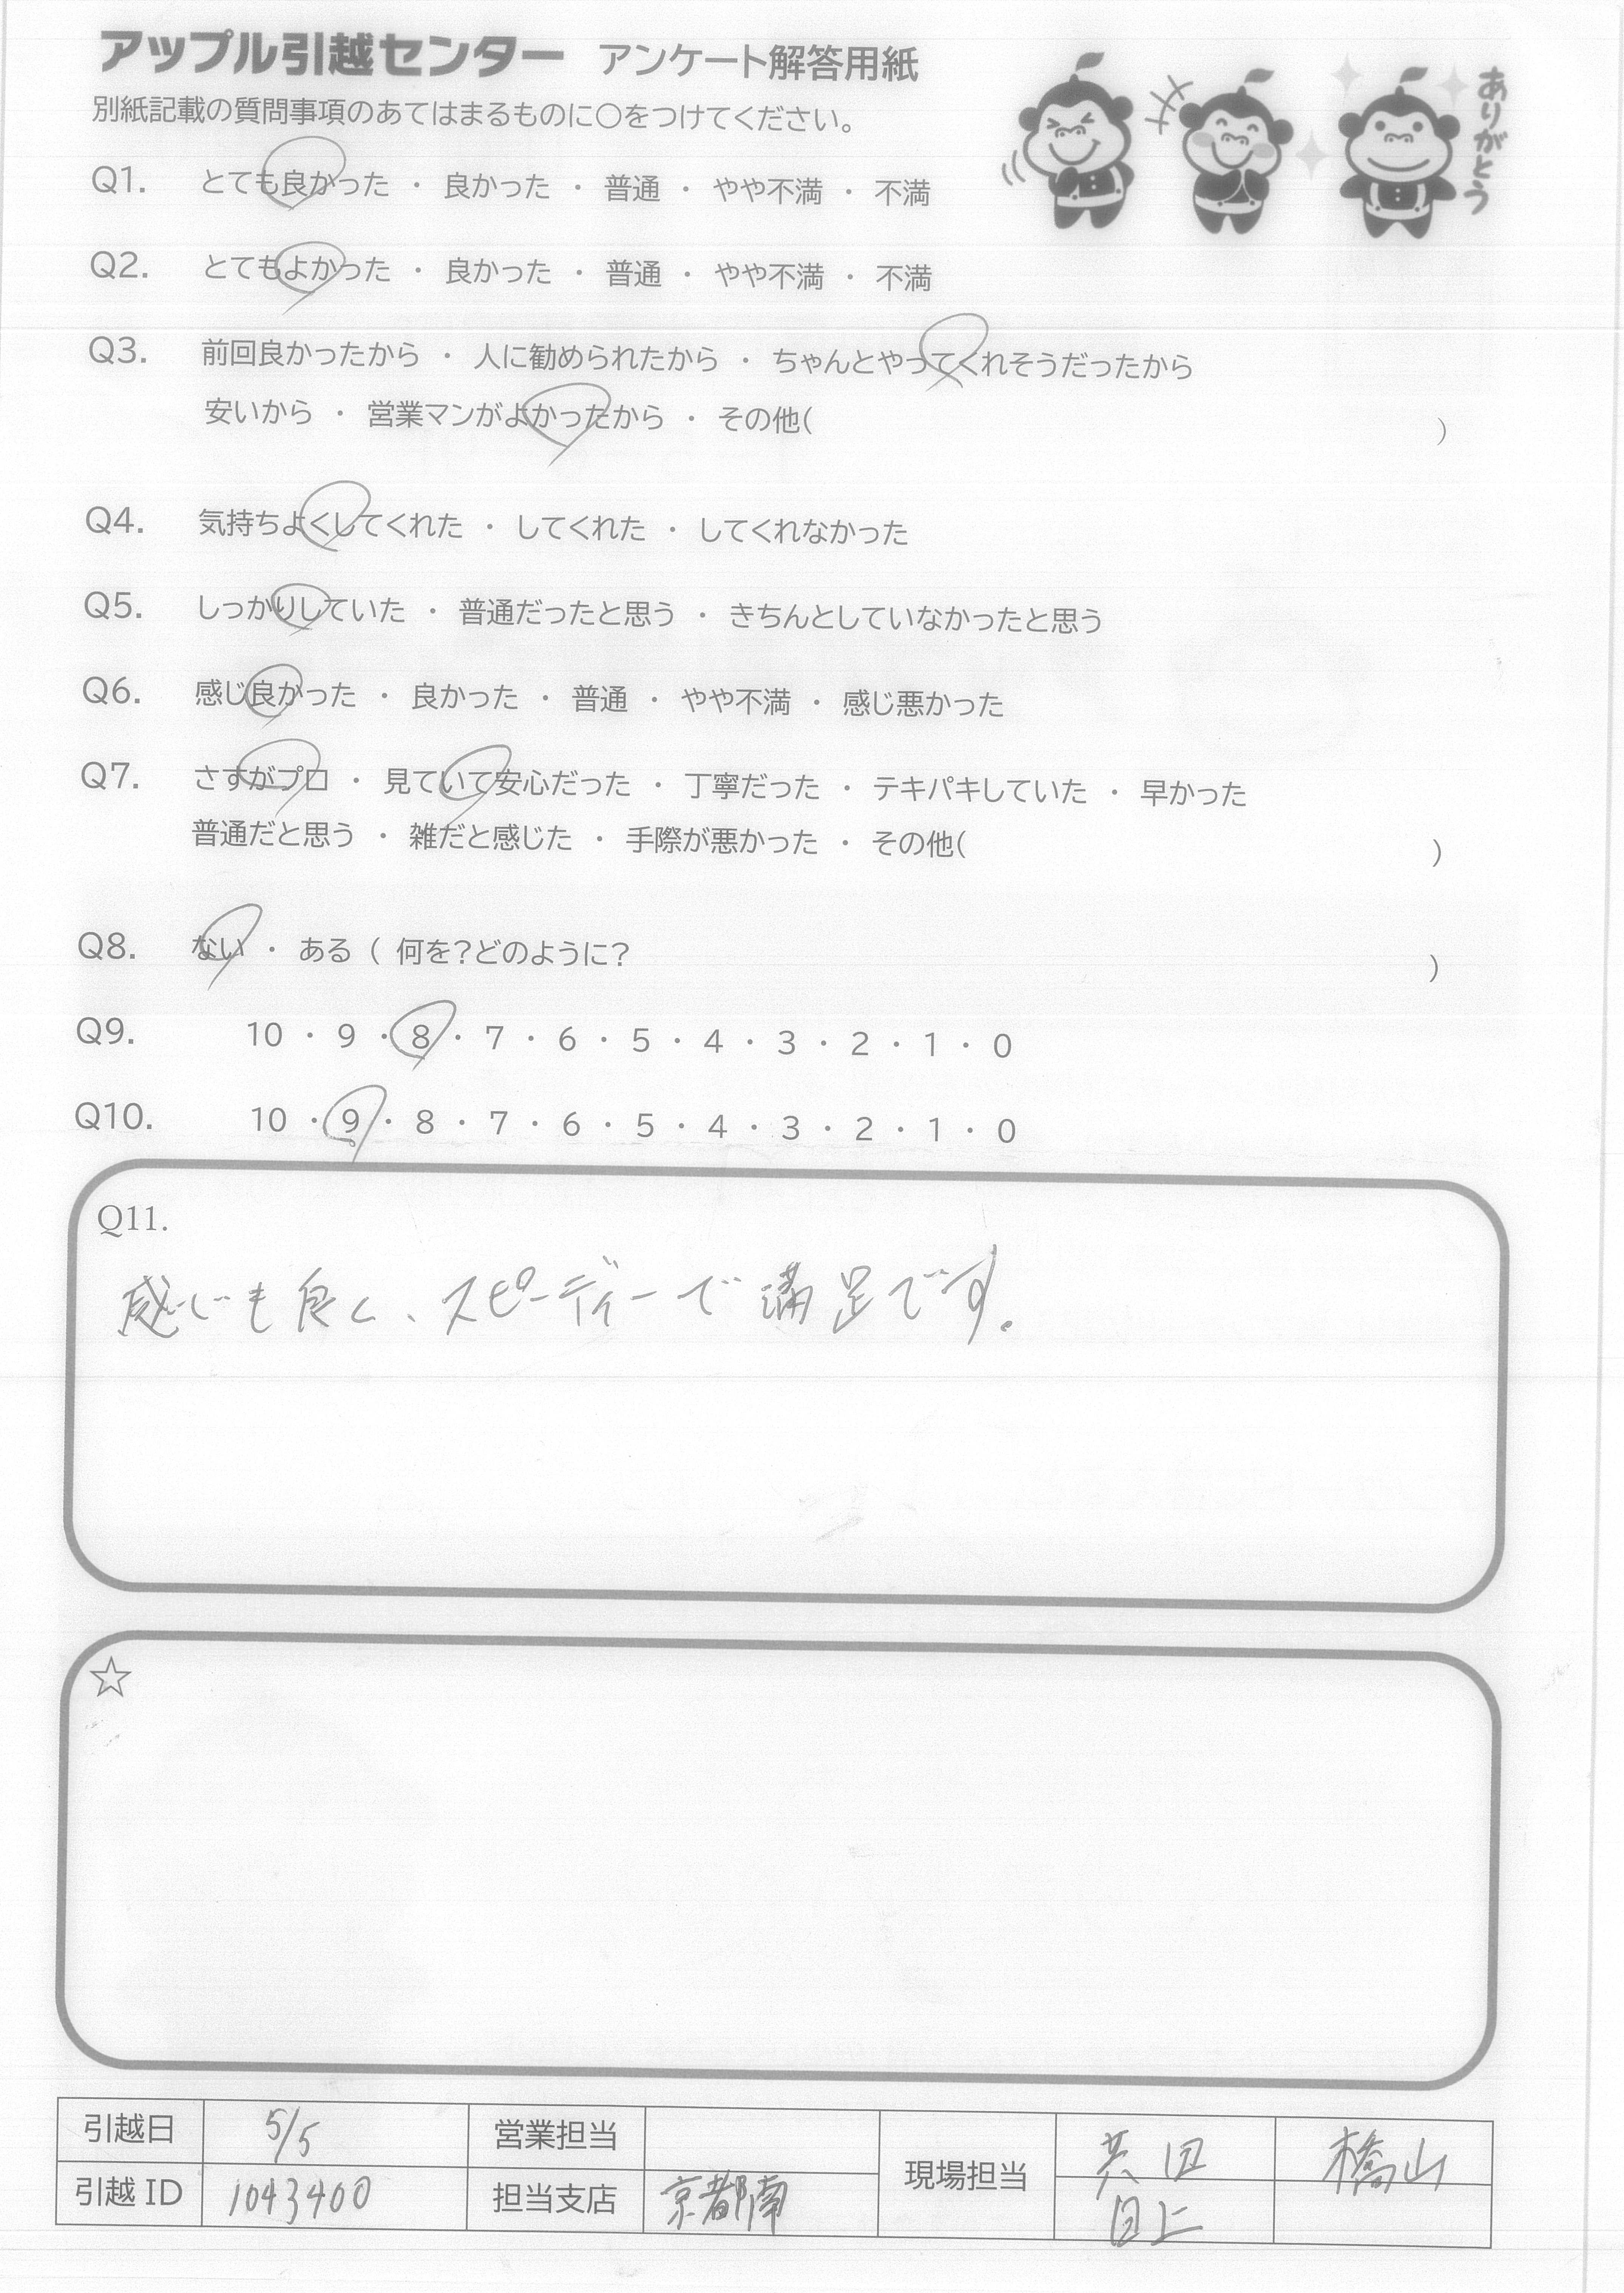 アップル引越センター アンケート解答用紙
別紙記載の質問事項のあてはまるものに○をつけてください。
ありがとう
Q1. とても良かった ・ 良かった ・ 普通 ・ やや不満 ・ 不満
Q2. とてもよかった ・ 良かった ・ 普通 ・ やや不満 ・ 不満
Q3. 前回良かったから ・ 人に勧められたから ・ ちゃんとやってくれそうだったから
安いから ・ 営業マンがよかったから ・ その他( )
Q4. 気持ちよくしてくれた ・ してくれた ・ してくれなかった
Q5. しっかりしていた ・ 普通だったと思う ・ きちんとしていなかったと思う
Q6. 感じ良かった ・ 良かった ・ 普通 ・ やや不満 ・ 感じ悪かった
Q7. さすがプロ ・ 見ていて安心だった ・ 丁寧だった ・ テキパキしていた ・ 早かった
普通だと思う ・ 雑だと感じた ・ 手際が悪かった ・ その他( )
Q8. ない ・ ある ( 何を?どのように? )
Q9. 10 ・ 9 ・ 8 ・ 7 ・ 6 ・ 5 ・ 4 ・ 3 ・ 2 ・ 1 ・ 0
Q10. 10 ・ 9 ・ 8 ・ 7 ・ 6 ・ 5 ・ 4 ・ 3 ・ 2 ・ 1 ・ 0
Q11.
感じも良く、スピーディーで満足です。
☆
引越日 5/5 営業担当 現場担当 橋山
引越 ID 1043400 担当支店 京都南